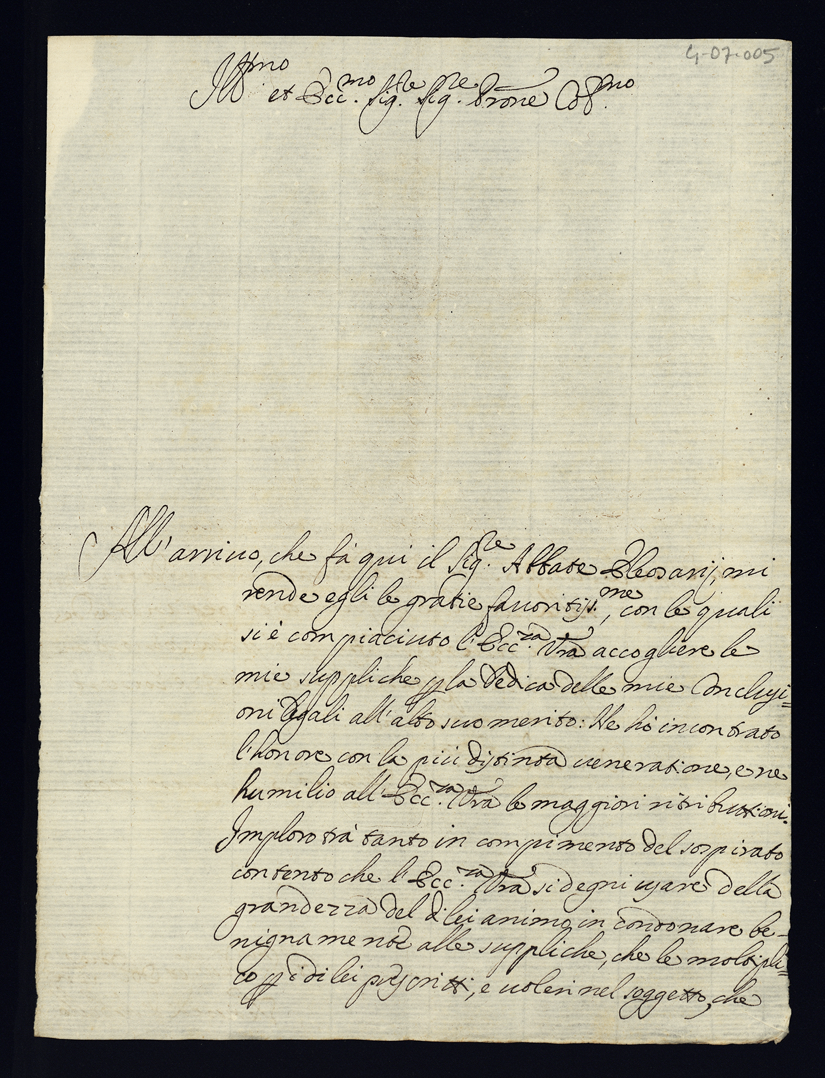 4-07-005
Ill.mo
et Ecc.mo Sig.re Sig.re Prone Col.mo
All'arriuo, che fà qui il Sig.re Abbate mi
rende egli le gratie fauoritiss.me, con le quali
si è compiaciuto l'Ecc.za Vra accogliere le
mie suppliche p la Dedica delle mie Conclusi=
oni legali all'alto suo merito: Ne hò incontrato
l'honore con la più distinta ueneratione, e ne
humilio all'Ecc.za Vra le maggiori ritributtioni.
Imploro trà tanto in compimento del sospirato
contento che l'Ecc.za Vra si degni usare della
grandezza del di lei animo, in condonare be-
nignamente alle suppliche, che le moltipli=
co p i di lei prescritti, e uoleri nel soggetto, che